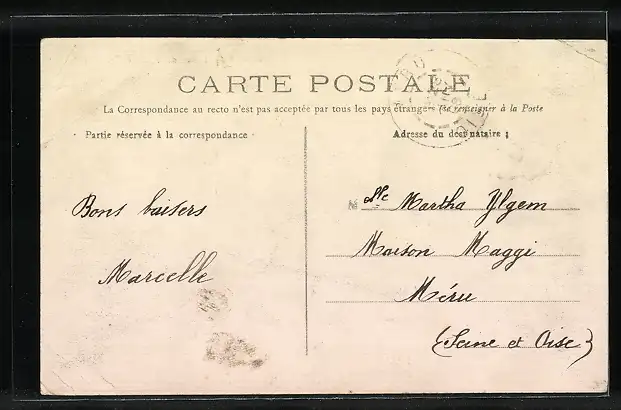 CARTE POSTALE
La Correspondance au recto n'est pas acceptée par tous les pays étrangers (Se renseigner à la Poste
Partie réservée à la correspondance
Adresse du destinataire :
Bons baisers
Marcelle
M lle Martha Ylgem
Maison Maggi
Méru
(Seine et Oise)